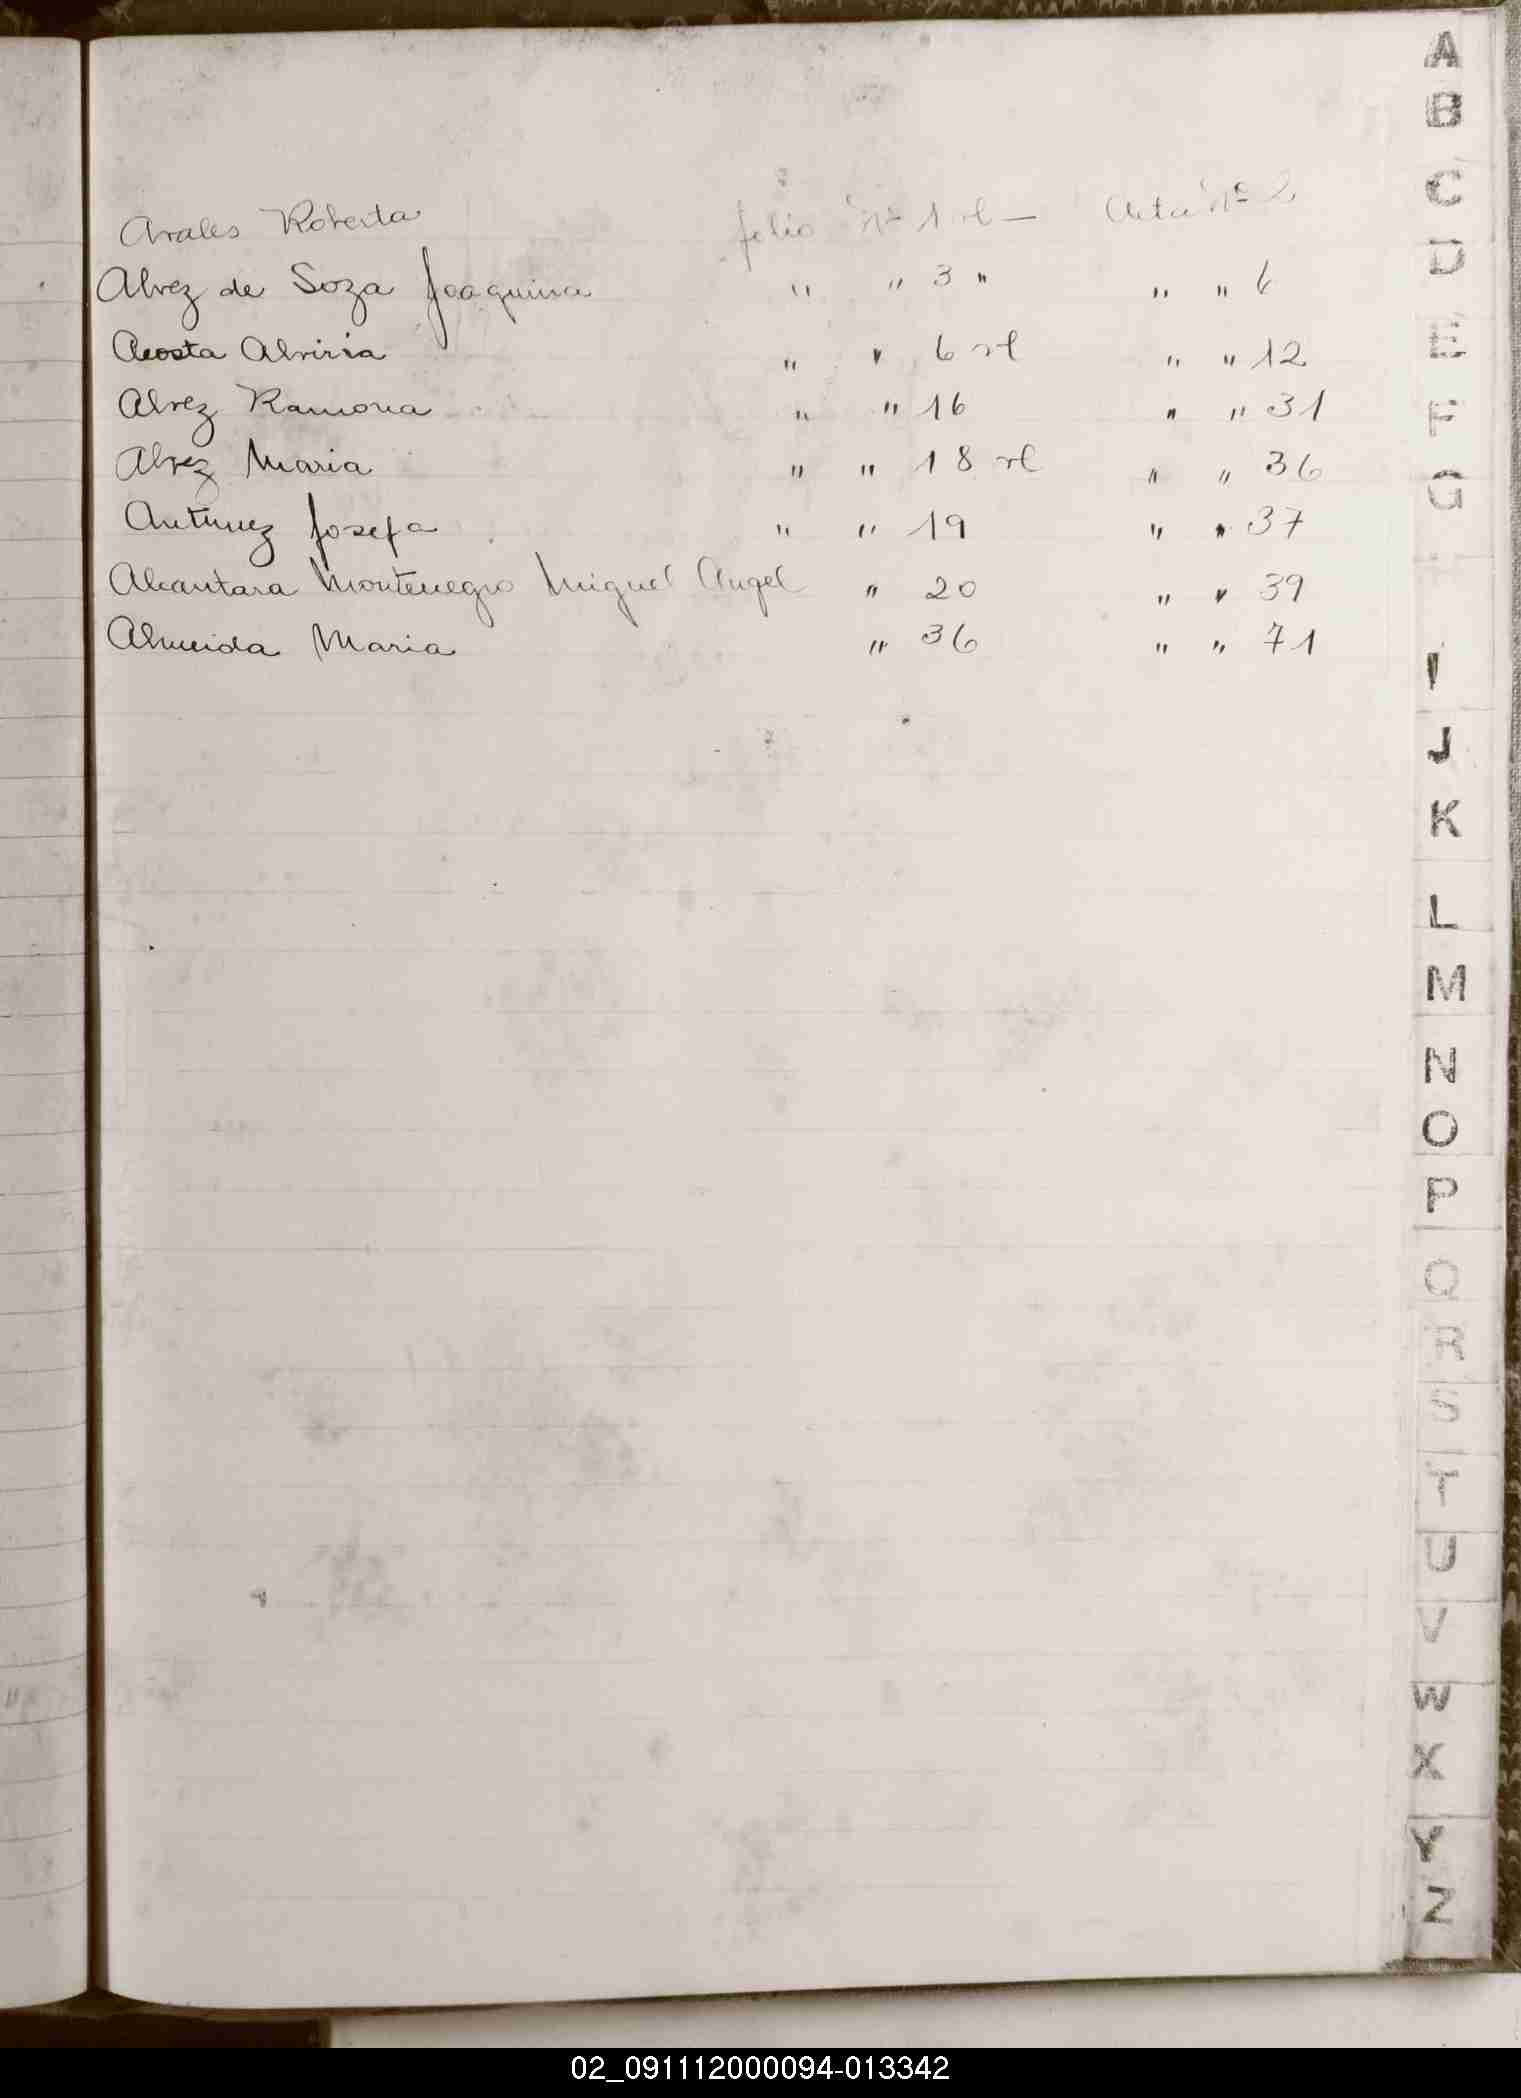 Arales Roberta folio Nº 1 vl — Acta Nº 2
Alvez de Soza Joaquina " " 3 " " " 6
Acosta Alvina " " 6 vl " " 12
Alvez Ramona " " 16 " " 31
Alvez Maria " " 18 vl " " 36
Antunez Josefa " " 19 " " 37
Alcantara Montenegro Miguel Angel " 20 " " 39
Almeida Maria " 36 " " 71
A
B
C
D
E
F
G
H
I
J
K
L
M
N
O
P
Q
R
S
T
U
V
W
X
Y
Z
02_091112000094-013342